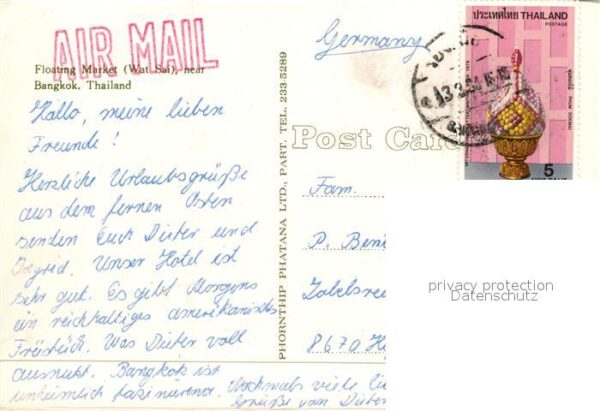 AIR MAIL
Floating Market (Wat Sai), near
Bangkok, Thailand
Hallo, meine lieben
Freunde!
Herzliche Urlaubsgrüße
aus dem fernen Osten
senden Euch Dieter und
Ingrid. Unser Hotel ist
sehr gut. Es gibt Morgens
ein reichhaltiges amerikanisches
Früstück. Was Dieter voll
ausnutzt. Bangkok ist
unheimlich faszinierend. Nochmals viele li
Grüße von Dieter
PHORNTHIP PHATANA LTD., PART. TEL. 233-5289
Germany
Post Car
Fam.
P. Beni
Zabelsree
8670 H
ประเทศไทย THAILAND
POSTAGE
5
privacy protection
Datenschutz